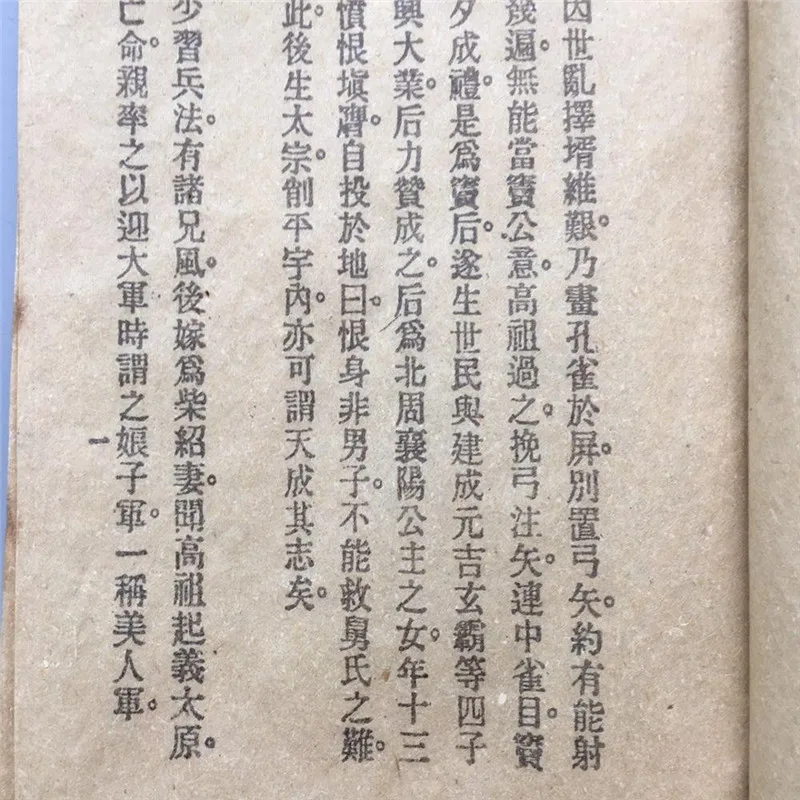 因世亂擇壻維艱。乃畫孔雀於屏。別置弓矢。約有能射
幾遍。無能當竇公意。高祖過之。挽弓注矢。連中雀目。竇
夕成禮。是爲竇后。遂生世民與建成元吉玄霸等四子
興大業。后力贊成之。后爲北周襄陽公主之女。年十三
憤恨塡膺。自投於地。曰。恨身非男子。不能救舅氏之難。
此後生太宗。削平宇內。亦可謂天成其志矣。
少習兵法。有諸兄風。後嫁爲柴紹妻。聞高祖起義太原。
亡命。親率之以迎大軍。時謂之娘子軍。一稱美人軍。
一